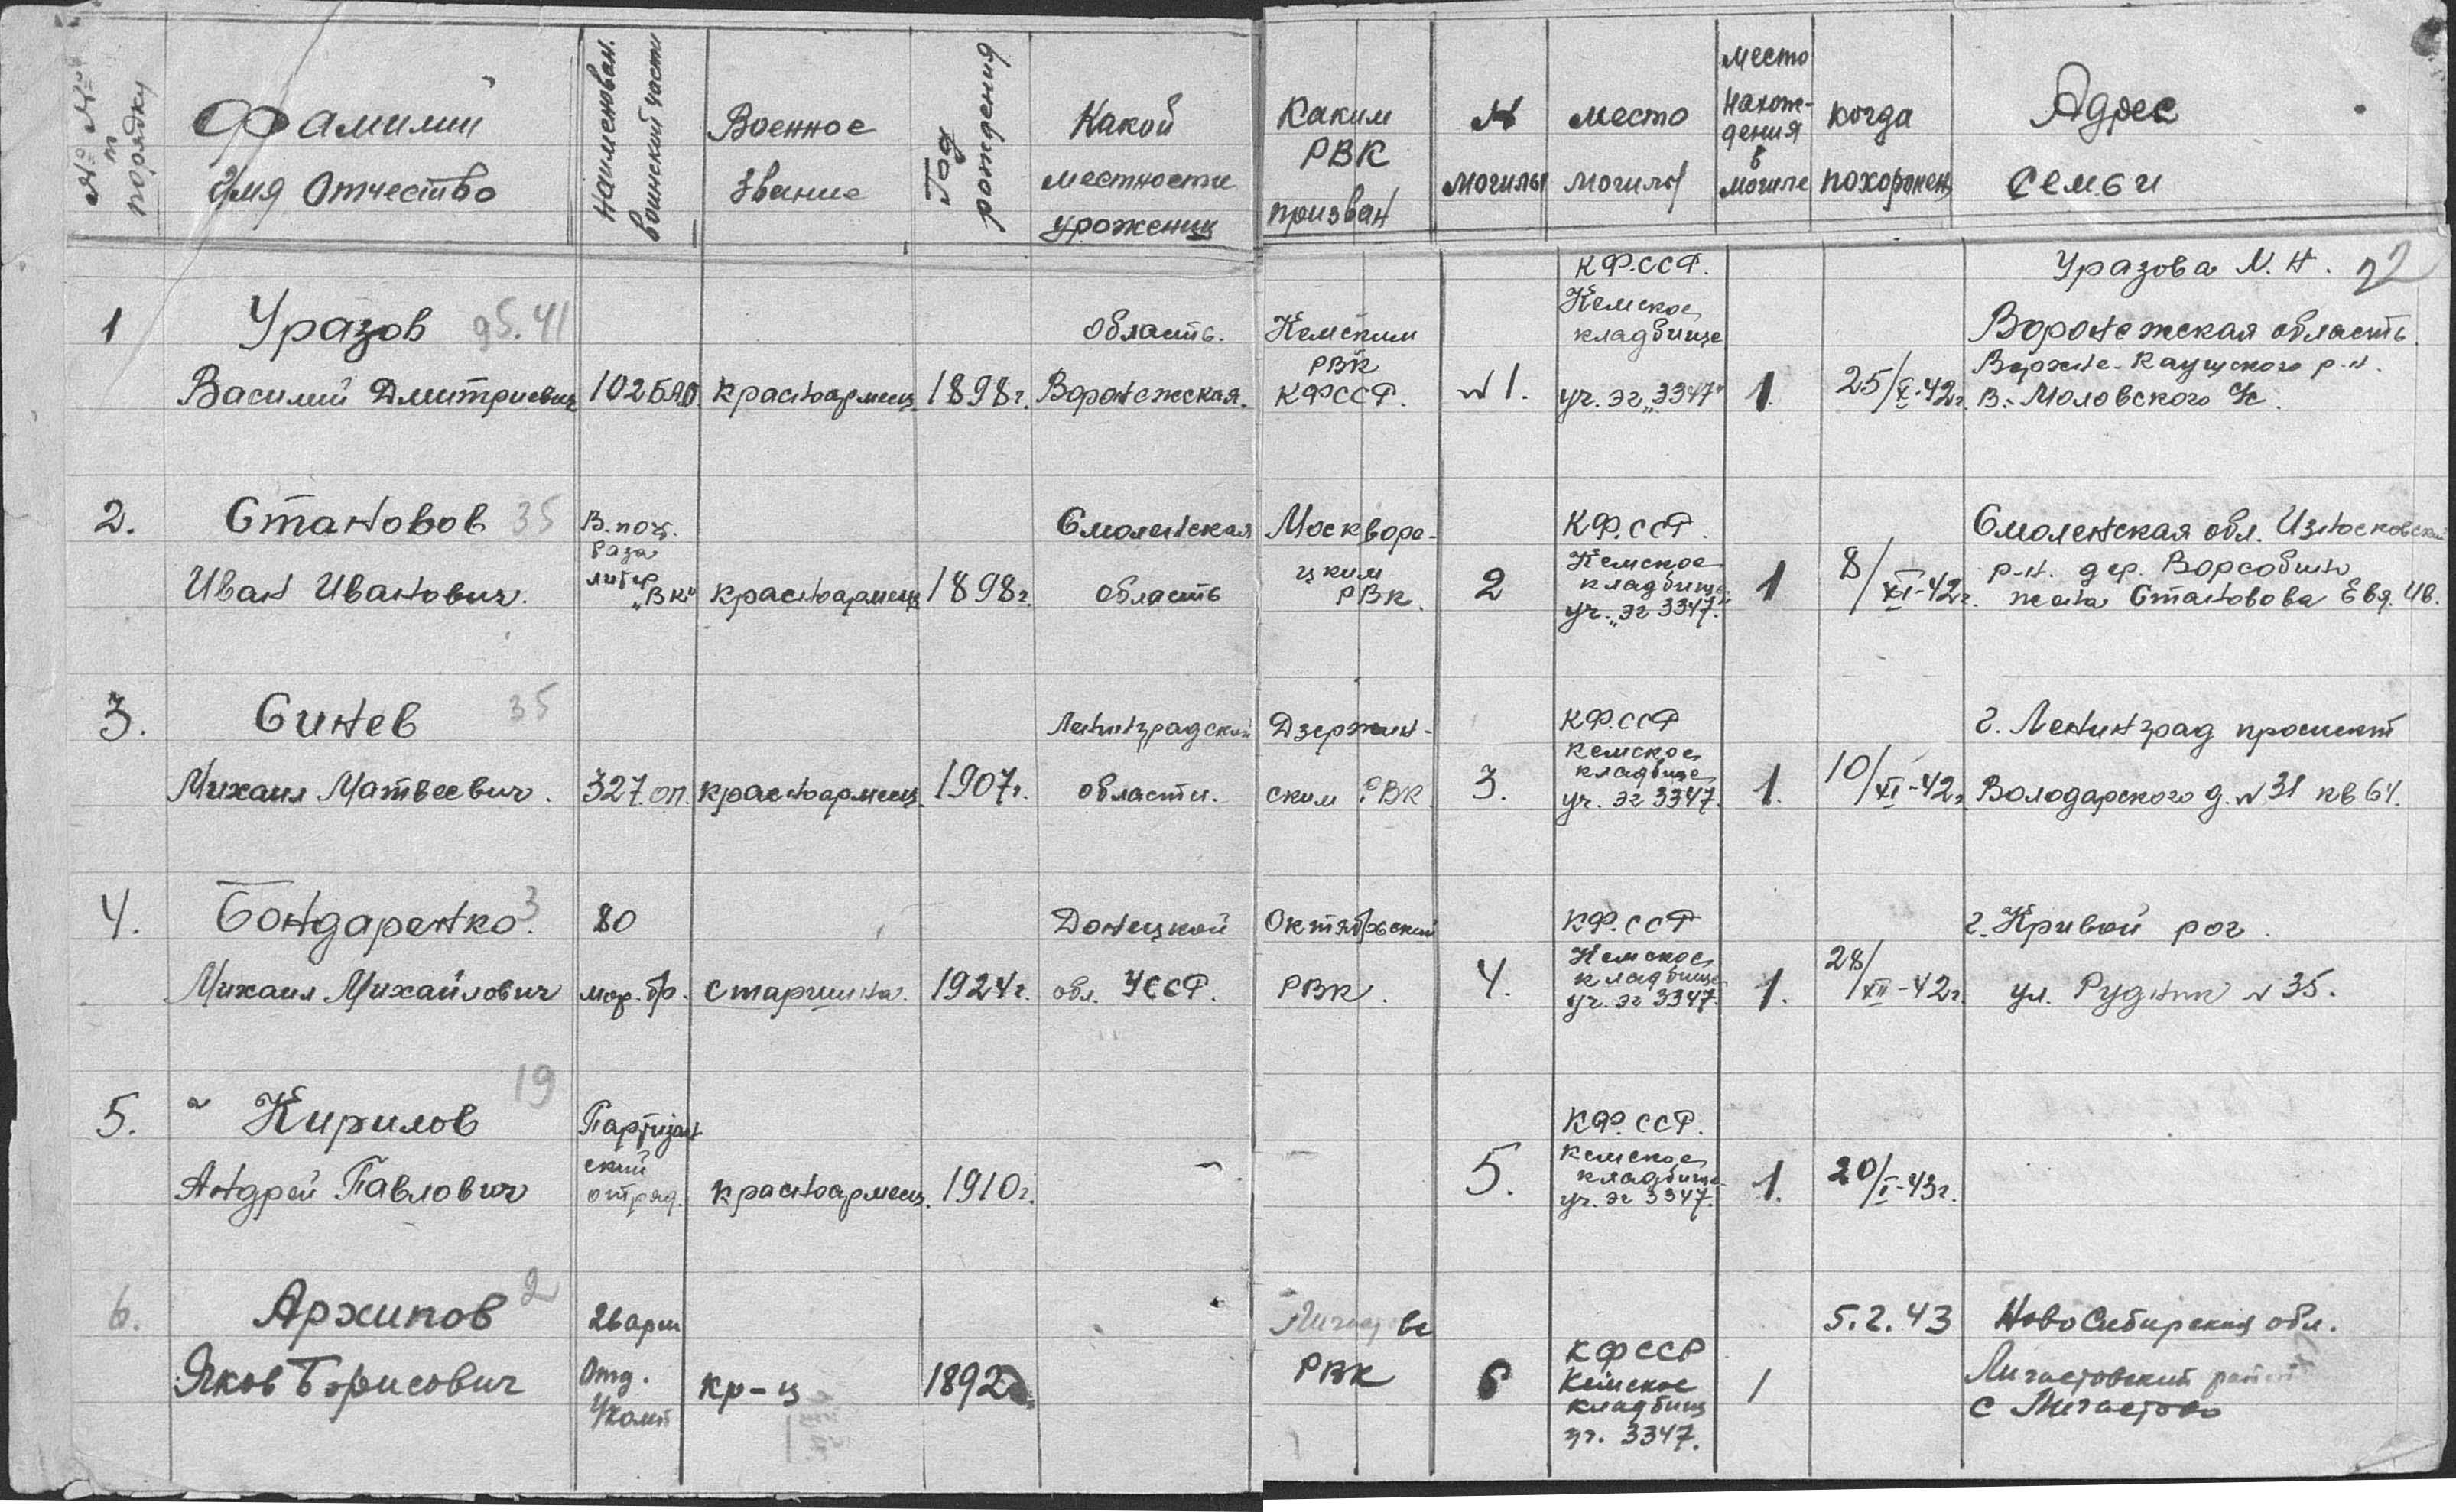 № № п порядку
Фамилий
Имя Отчество
Наименован. воинский части
Военное
звание
Год рождения
Какой
местности
уроженец
Каким
РВК
призван
N
могилы
место
могилы
место
нахож-
дения
в
могиле
когда
похоронен
Адрес
семьи
22
1
Уразов 95.41
Василий Дмитриевич
102 БАО
красноармеец
1898г.
область.
Воронежская.
Кемским
РВК
КФССР.
N 1.
КФ.ССР.
Кемское
кладбище
уч. эг „3347"
1.
25/X-42г.
Уразова М. Н.
Воронежская область
р-н.
В.-Моловского с/с.
2.
Становов 35
Иван Иванович.
В. поч.
база
литер
„ВК"
красноармеец
1898г.
Смоленская
область
Москворе-
цким
РВК.
2
КФ.ССР.
Кемское
кладбище
уч. „эг 3347."
1
8/XI-42г.
Смоленская обл. Износковский
р-н. дер. Ворсобино
жена Становова Евд. Ив.
3.
Синев 35
Михаил Матвеевич.
327. оп.
красноармеец.
1907г.
Ленинградский
области.
Дзержин-
ским РВК
3.
КФ.ССР
кемское
кладбище
уч. эг 3347.
1.
10/XI-42г.
г. Ленинград проспект
Володарского д. N 31 кв 64.
4.
Бондаренко. 3
Михаил Михайлович
80
мор. бр.
старшина.
1924г.
Донецкой
обл. УССР.
Октябрьский
РВК.
4.
КФ.ССР
Кемское
кладбище
уч. эг 3347.
1.
28/XII-42г.
г. Кривой рог.
ул. Рудник N 35.
5.
Кирилов 19
Андрей Павлович
Партизан
ский
отряд.
красноармеец.
1910г.
5.
КФ.ССР.
кемское
кладбище
уч. эг 3347.
1.
20/I-43г.
6.
Архипов 2
Яков Борисович
26 арм
Отд.
кр-ц
1892
РВК
6
КФССР
Кемское
кладбищ
уч. 3347.
1
5.2.43
Новосибирский обл.
район
с